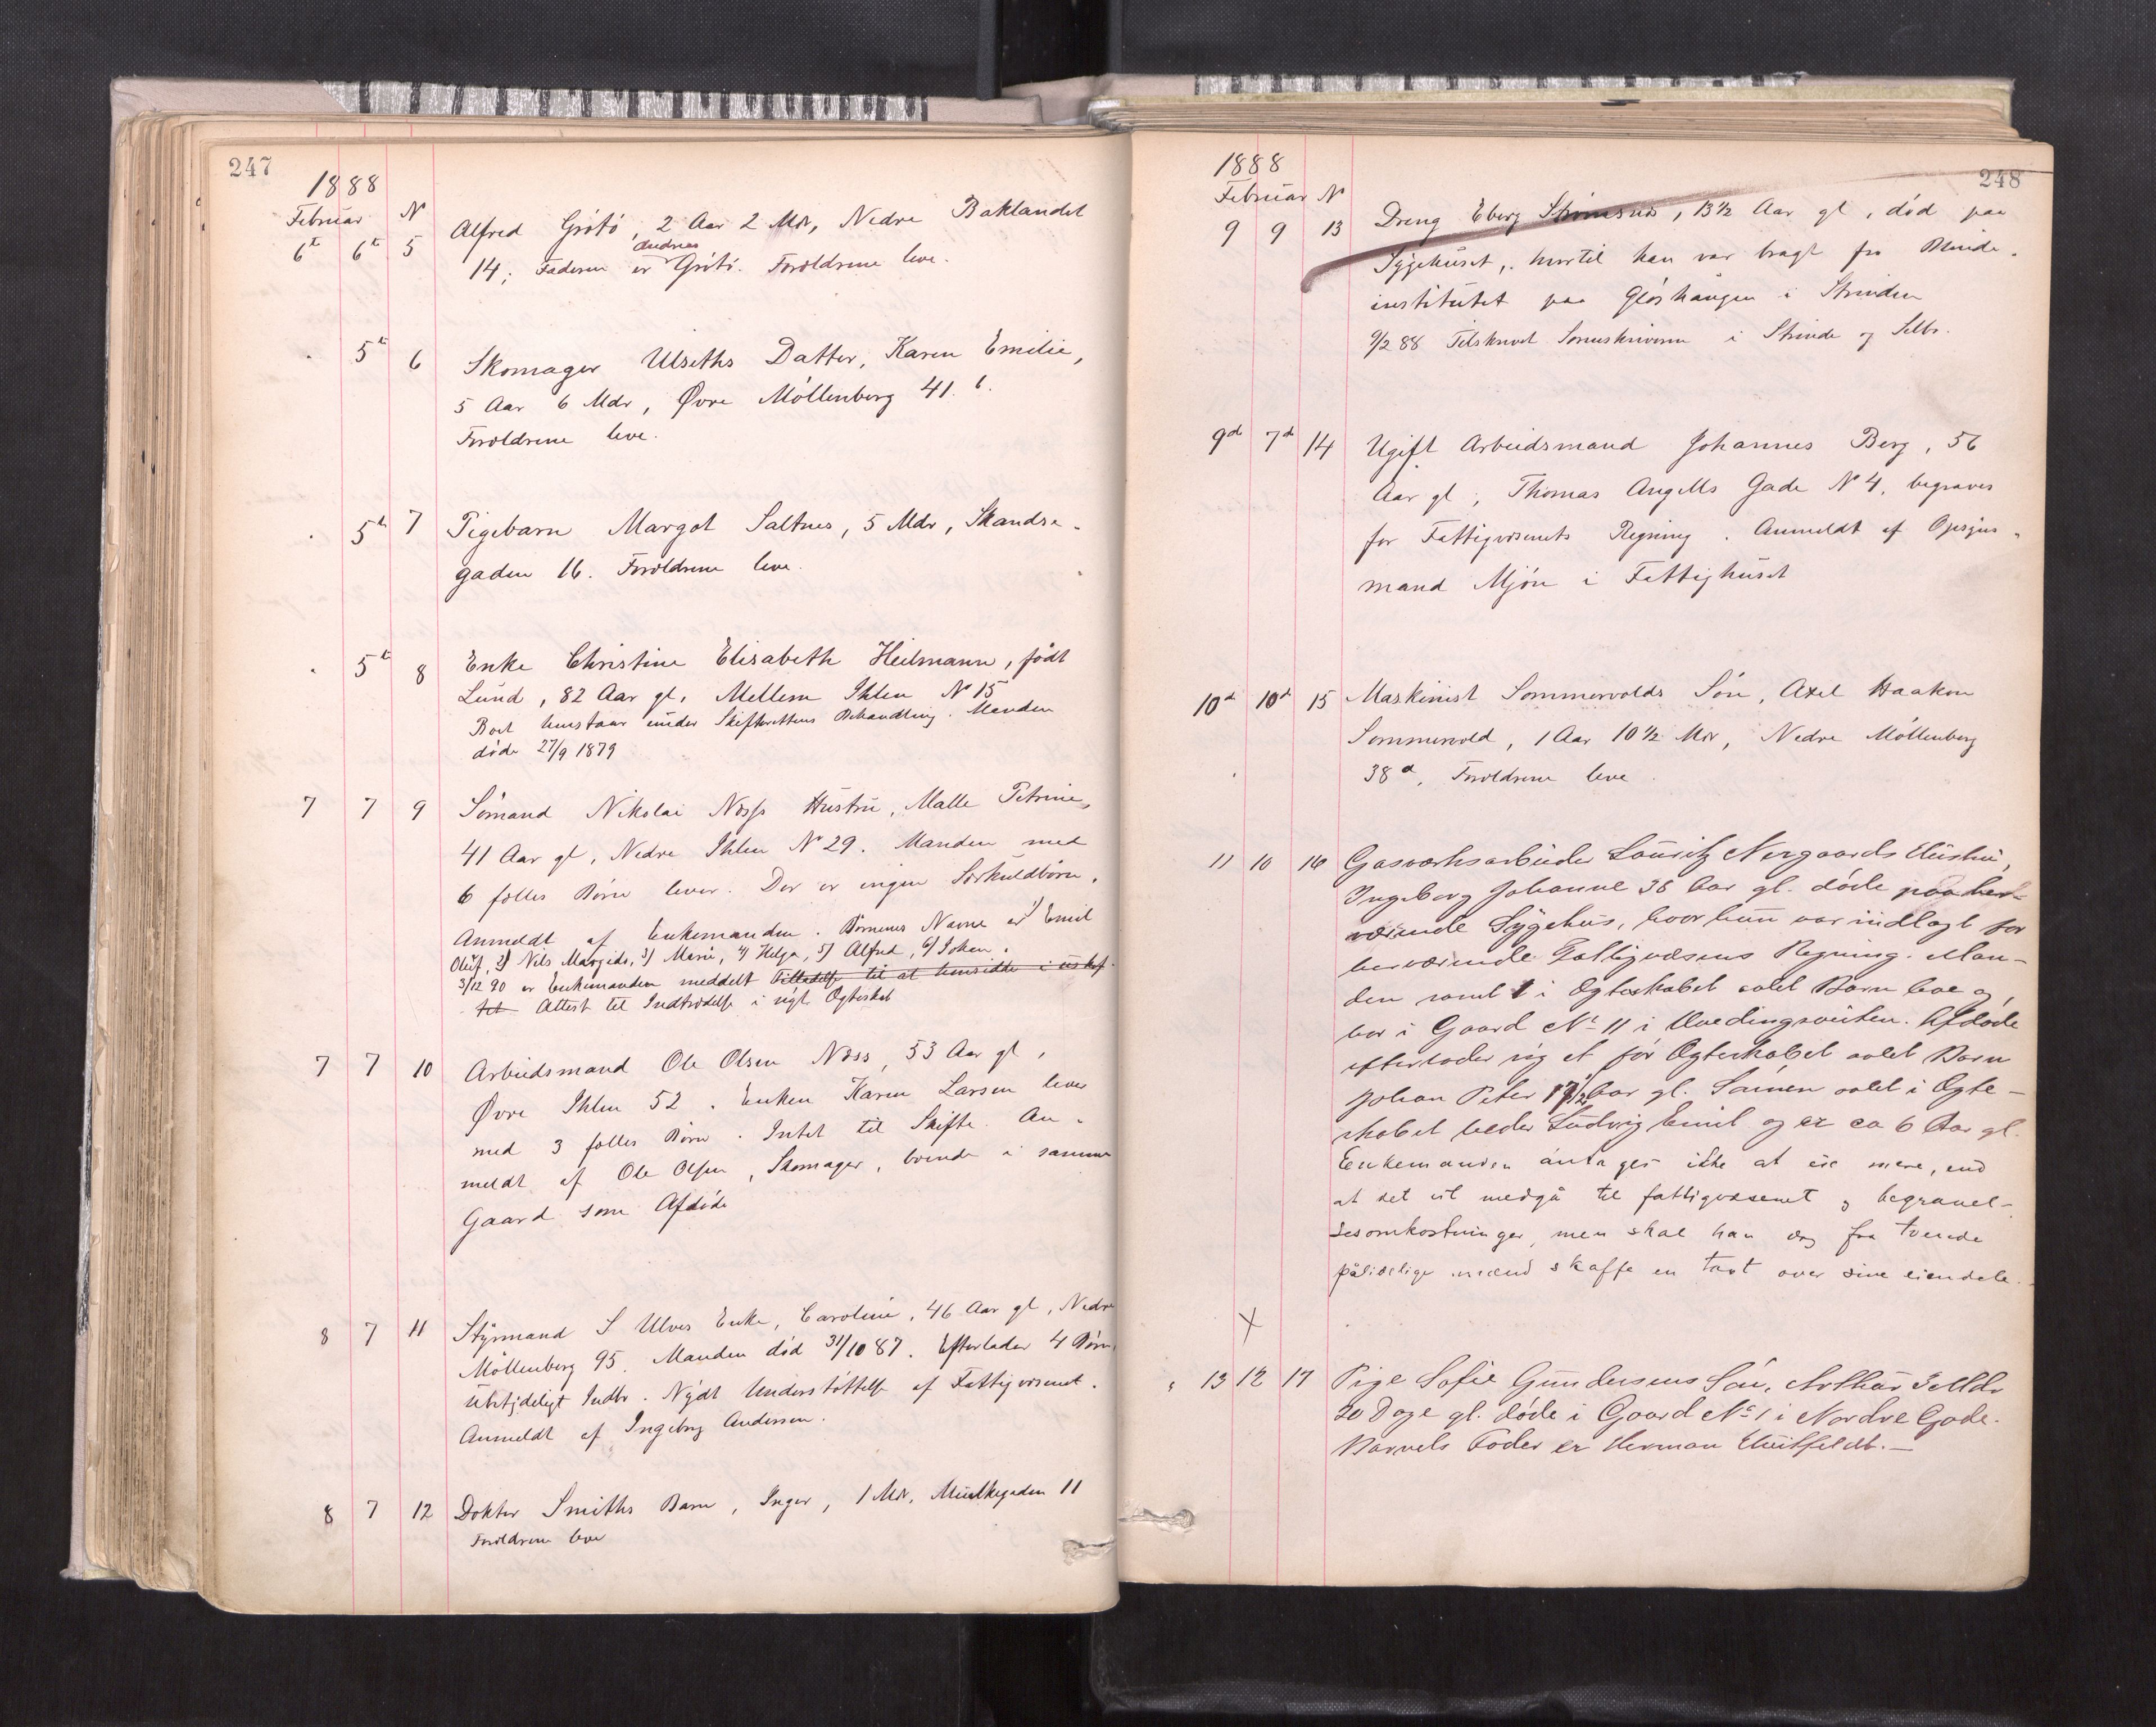 247
1888
Februar N
6t 6t 5 Alfred Grötö, 2 Aar 2 Mdr, Nedre Baklandet
14; Faderen er Andreas Grötö. Forældrene leve.
" 5t 6 Skomager Ulseths Datter, Karen Emilie,
5 Aar 6 Mdr, Øvre Möllenberg 41 b.
Forældrene leve.
" 5t 7 Pigebarn Margot Saltnes, 5 Mdr, Skandse-
gaden 16. Forældrene leve.
" 5t 8 Enke Christine Elisabeth Heilmann, födt
Lund, 82 Aar gl, Mellem Ihlen N 15
Boet henstaar under Skifterettens Behandling. Manden
döde 27/9 1879
7 7 9 Sömand Nikolai Næss Hustru, Malle Petrine,
41 Aar gl, Nedre Ihlen N 29. Manden med
6 fælles Börn lever. Der er ingen Særkuldbörn.
Anmeldt af Enkemanden. Börnenes Navne er 1) Emil
Oluf, 2) Nils Margido, 3) Marie, 4) Helga, 5) Alfred, 6) Johan.
3/12 90 er Enkemanden meddelt Tilladelse til at hensidde i uskif-
tet Attest til Indtrædelse i nyt Ægteskab
7 7 10 Arbeidsmand Ole Olsen Næss, 53 Aar gl,
Øvre Ihlen 52. Enken Karen Larsen lever
med 3 fælles Börn. Intet til Skifte. An-
meldt af Ole Olsen, Skomager, boende i samme
Gaard som Afdöde
8 7 11 Styrmand S Ulves Enke, Caroline, 46 Aar gl, Nedre
Möllenberg 95. Manden död 31/10 87. Efterlader 4 Börn,
ubetydeligt Indbo. Nydt Understöttelse af Fattigvæsenet.
Anmeldt af Ingeborg Andersen.
8 7 12 Doktor Smiths Barn, Inger, 1 Mdr, Munkegaden 11
Forældrene leve
248
1888
Februar N
9 9 13 Dreng Eberg Strömsnes, 13 1/2 Aar gl, död paa
Sygehuset, hvortil han var bragt fra Blinde-
institutet paa Glöshaugen i Strinden
9/2 88 Tilskrevet Sorenskriveren i Strinde og Selbo.
9d 7d 14 Ugift Arbeidsmand Johannes Berg, 56
Aar gl, Thomas Angells Gade N 4, begraves
for Fattigvæsenets Regning. Anmeldt af Opsyns-
mand Mjön i Fattighuset
10d 10d 15 Maskinist Sommervolds Sön, Axel Haakon
Sommervold, 1 Aar 10 1/2 Mdr, Nedre Möllenberg
38 a, Forældrene leve.
11 10 16 Gasværksarbeider Lauritz Nergaards Hustru,
Ingeborg Johanne 38 Aar gl. döde paa her-
værende Sygehus, hvor hun var indlagt for
herværende Fattigvæsens Regning. Man-
den samt 1 i Ægteskabet avlet Barn leve og
bor i Gaard No 11 i Hvedingsveiten. Afdöde
efterlader sig et för Ægteskabet avlet Barn
Johan Peter 17 1/2 Aar gl. Sönnen avlet i Ægte-
skabet heder Ludvig Emil og er ca 6 Aar gl.
Enkemanden antages ikke at eie mere, end
at det vil medgå til fattigvæsenet og begravel-
sesomkostninger, men skal han dog fra tvende
pålidelige mænd skaffe en taxt over sine eiendele.
X
" 13 12 17 Pige Sofie Gundersens Sön, Arthur 3 Mdr
20 Dage gl. döde i Gaard No 1 i Nordre Gade.
Barnets Fader er Herman Huitfeldt.—